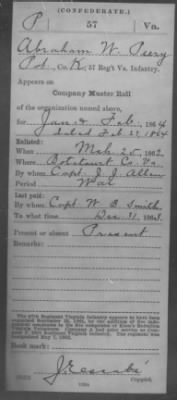 (CONFEDERATE.)
P 57 Va.
Abraham W. Peery
Pvt, Co. K, 57 Reg't Va. Infantry.
Appears on
Company Muster Roll
of the organization named above,
for Jan & Feb, 1864
dated Feb 29, 1864
Enlisted:
When Mch 25, 1862
Where Botetourt Co. Va.
By whom Capt. J. J. Allen
Period War
Last paid:
By whom Capt. W. B. Smith
To what time Dec 31, 1863.
Present or absent Present
Remarks:
Book mark:
Copyist.